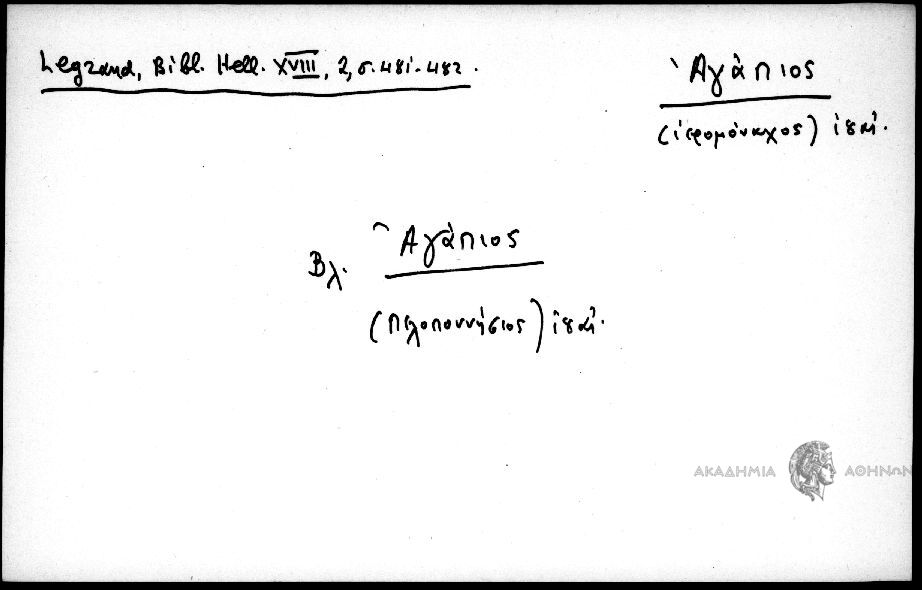 Legrand, Bibl. Hell. XVIII, 2, σ. 481-482.
Ἀγάπιος
(ἱερομόναχος) ιη΄ αἰ.
Βλ. Ἀγάπιος
(Πελοποννήσιος) ιη΄ αἰ.
ΑΚΑΔΗΜΙΑ ΑΘΗΝΩΝ